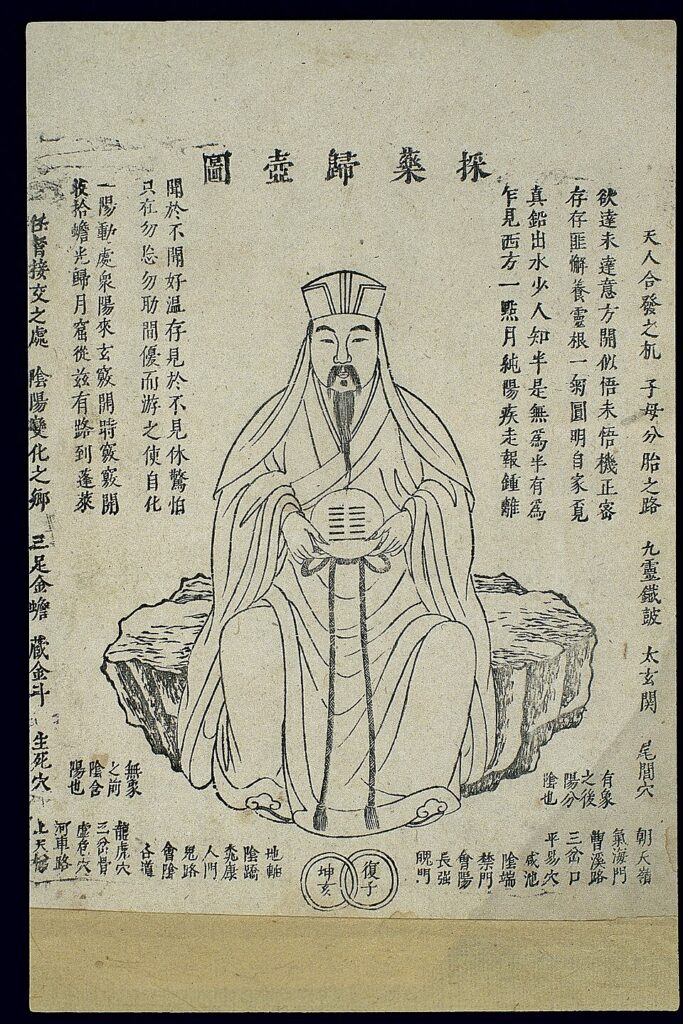 採藥歸壺圖
天人合發之机 子母分胎之路 九靈鐵鼓 太玄関 尾閭穴
欲達未達意方開似悟未悟機正密
存存匪懈養靈根一匊圓明自家覔
真鉛出水少人知半是無爲半有爲
乍見西方一㸃月純陽疾走報鍾離
聞於不聞好温存見於不見休驚怕
只在勿忘勿助間優而游之使自化
一陽動處衆陽來玄竅開時竅竅開
收拾蟾光歸月窟從兹有路到蓬萊
任督接交之處 陰陽變化之鄉 三足金蟾 藏金斗 生死穴
有象
之後
陽分
陰也
無象
之前
陰含
陽也
朝天嶺
氣海門
曹溪路
三岔口
平易穴
咸池
陰端
禁門
會陽
長強
魄門
復子
坤亥
地軸
陰蹻
桃康
人門
鬼路
會陰
谷道
龍虎穴
三岔骨
虛危穴
河車路
上天梯